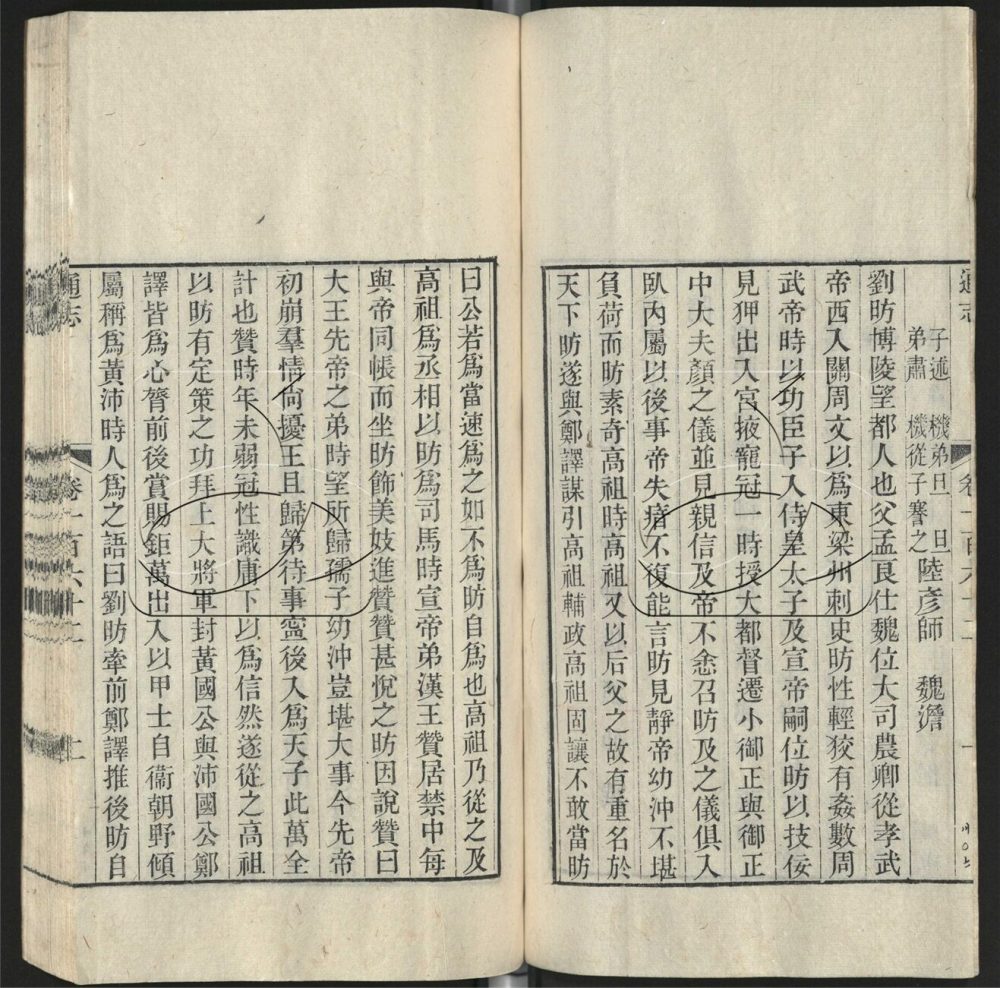 通志 卷一百六十二 一
子述 機弟旦 旦
弟肅 機從子謇之 陸彥師 魏澹
劉昉博陵望都人也父孟良仕魏位大司農卿從孝武
帝西入關周文以為東梁州刺史昉性輕狡有姦數周
武帝時以功臣子入侍皇太子及宣帝嗣位昉以技佞
見狎出入宮掖寵冠一時授大都督遷小御正與御正
中大夫顏之儀並見親信及帝不悆召昉及之儀俱入
臥內屬以後事帝失瘖不復能言昉見靜帝幼沖不堪
負荷而昉素奇高祖時高祖又以后父之故有重名於
天下昉遂與鄭譯謀引高祖輔政高祖固讓不敢當昉
曰公若爲當速爲之如不爲昉自爲也高祖乃從之及
高祖爲丞相以昉爲司馬時宣帝弟漢王贊居禁中每
與帝同帳而坐昉飾美妓進贊贊甚悅之昉因說贊曰
大王先帝之弟時望所歸孺子幼沖豈堪大事今先帝
初崩羣情尙擾王且歸第待事寧後入爲天子此萬全
計也贊時年未弱冠性識庸下以爲信然遂從之高祖
以昉有定策之功拜上大將軍封黃國公與沛國公鄭
譯皆爲心膂前後賞賜鉅萬出入以甲士自衞朝野傾
屬稱爲黃沛時人爲之語曰劉昉牽前鄭譯推後昉自
通志 卷一百六十二 一